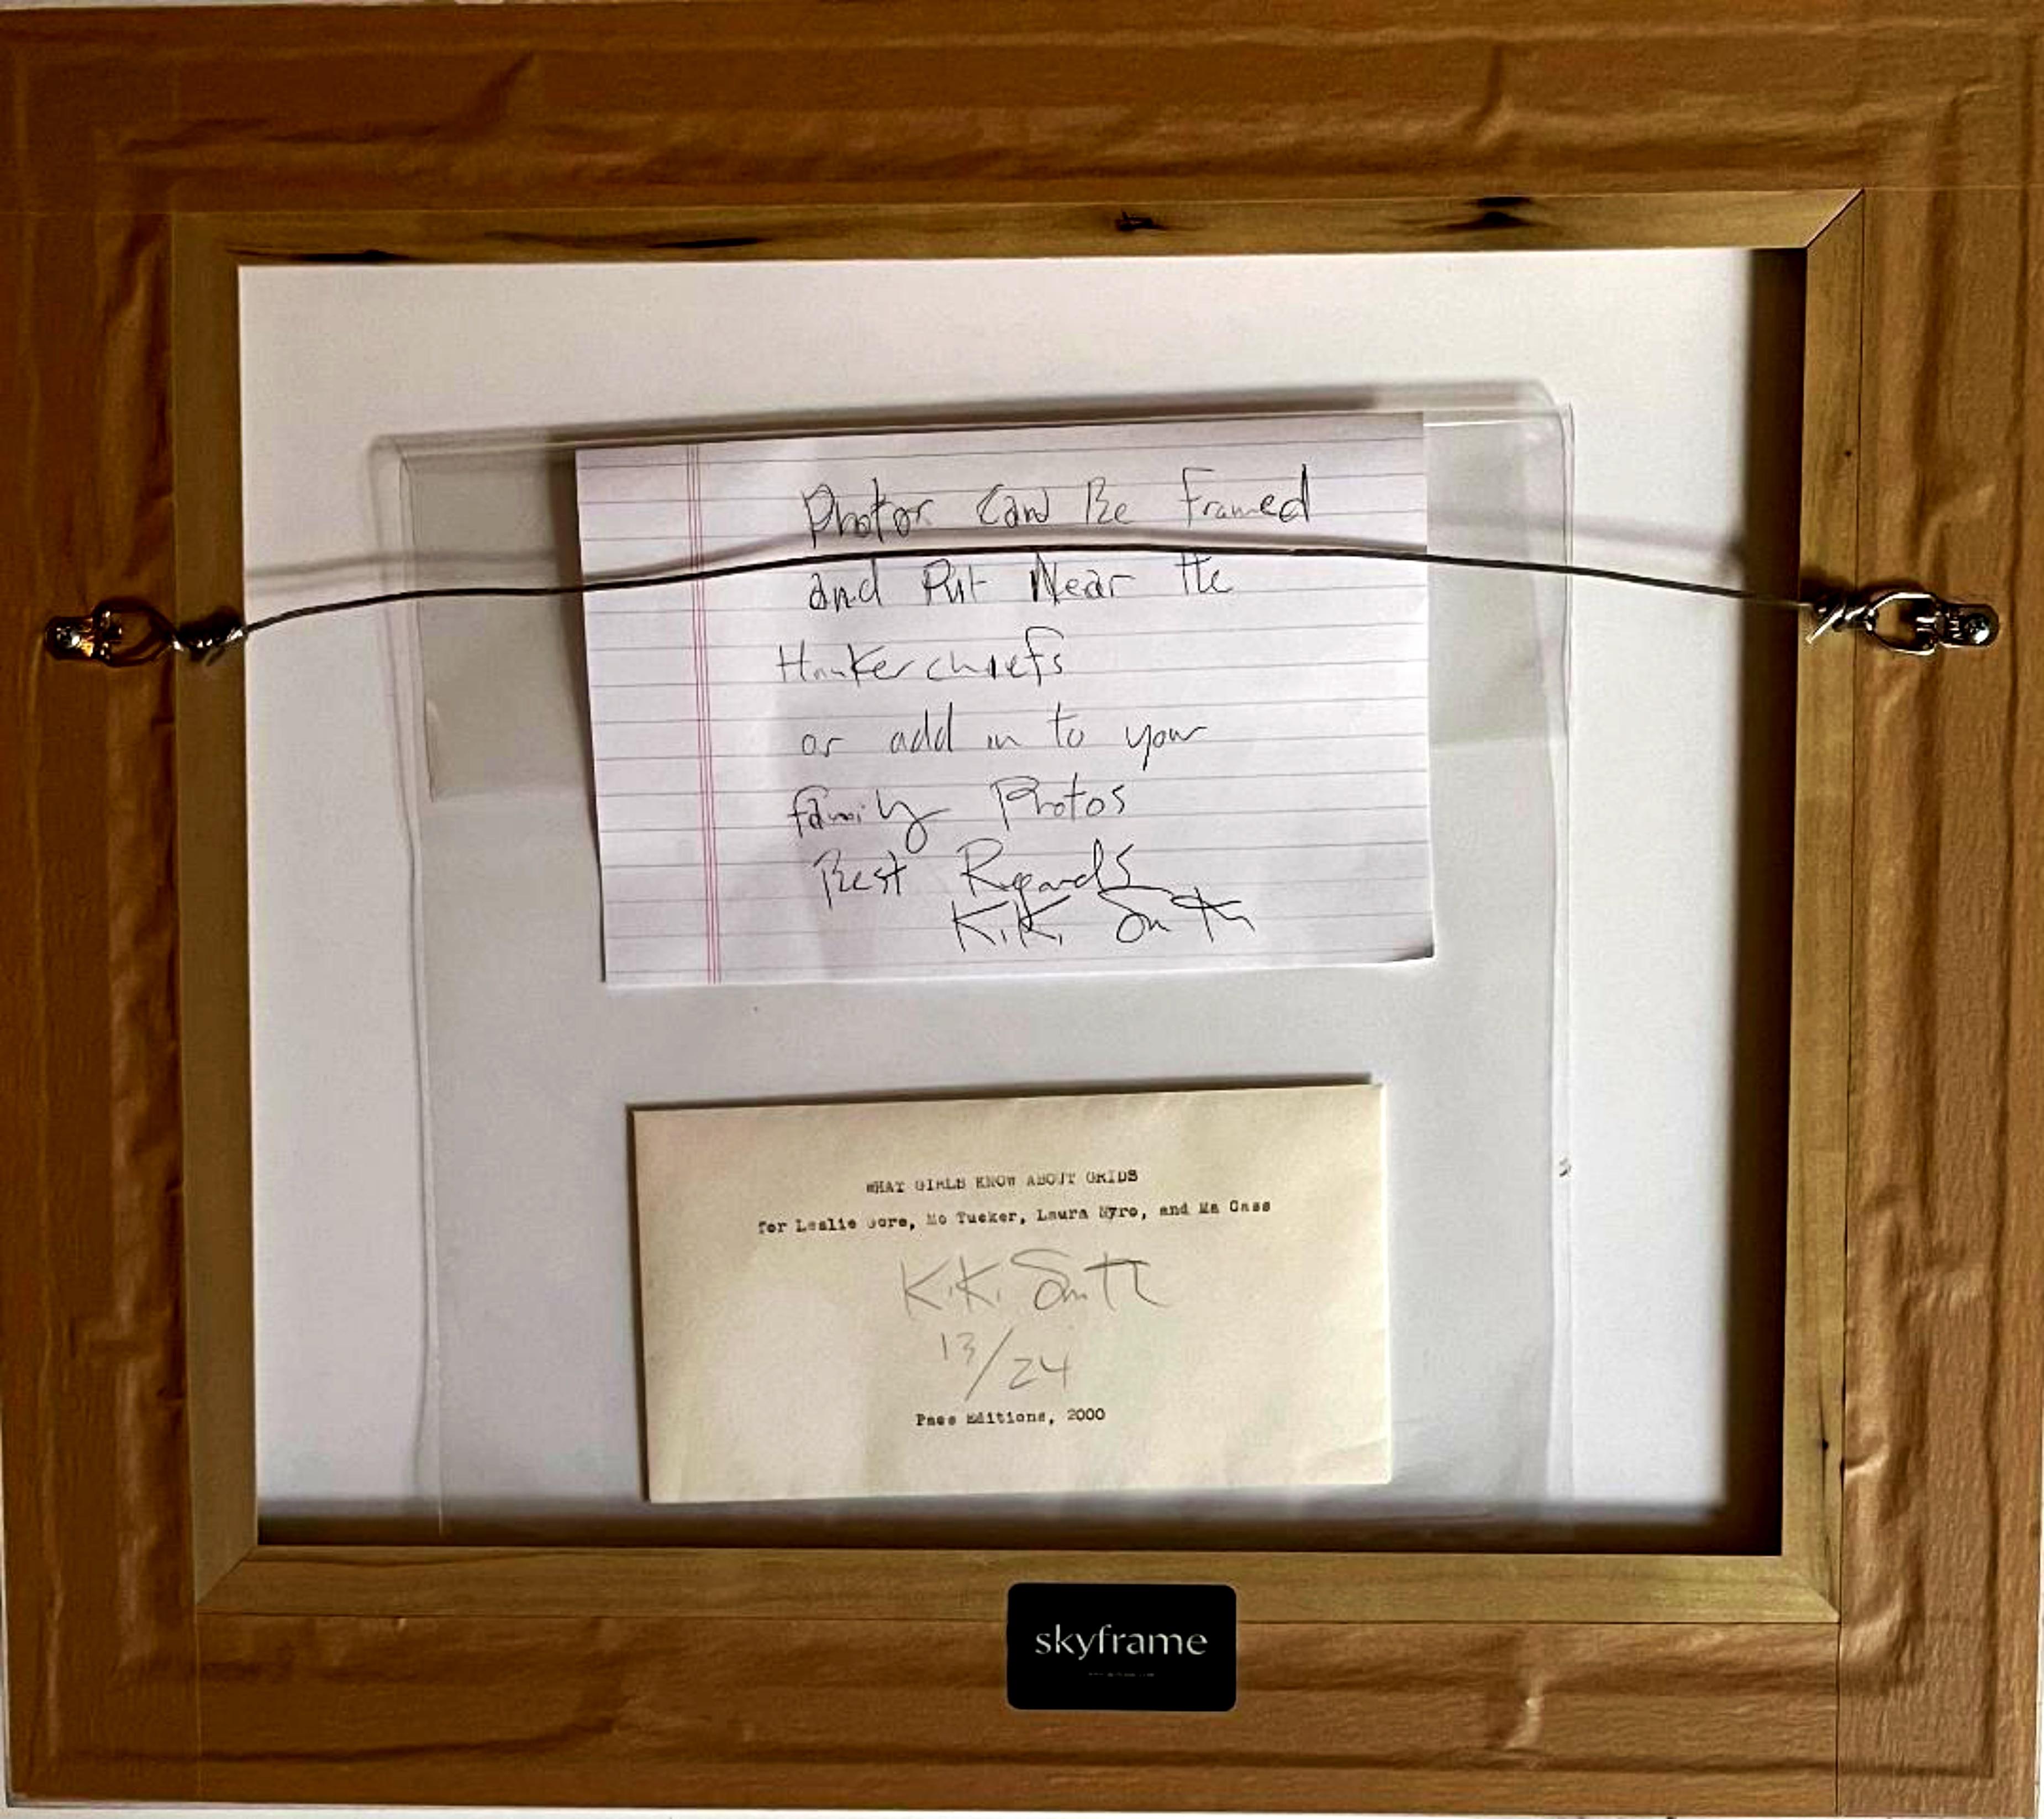 Photos Can Be Framed
and Put Near the
Hankerchiefs
or add in to your
family Photos
Best Regards
Kiki Smith
WHAT GIRLS KNOW ABOUT GRIDS
for Leslie Gore, Mo Tucker, Laura Nyro, and Ma Cass
Kiki Smith
13/24
Pace Editions, 2000
skyframe